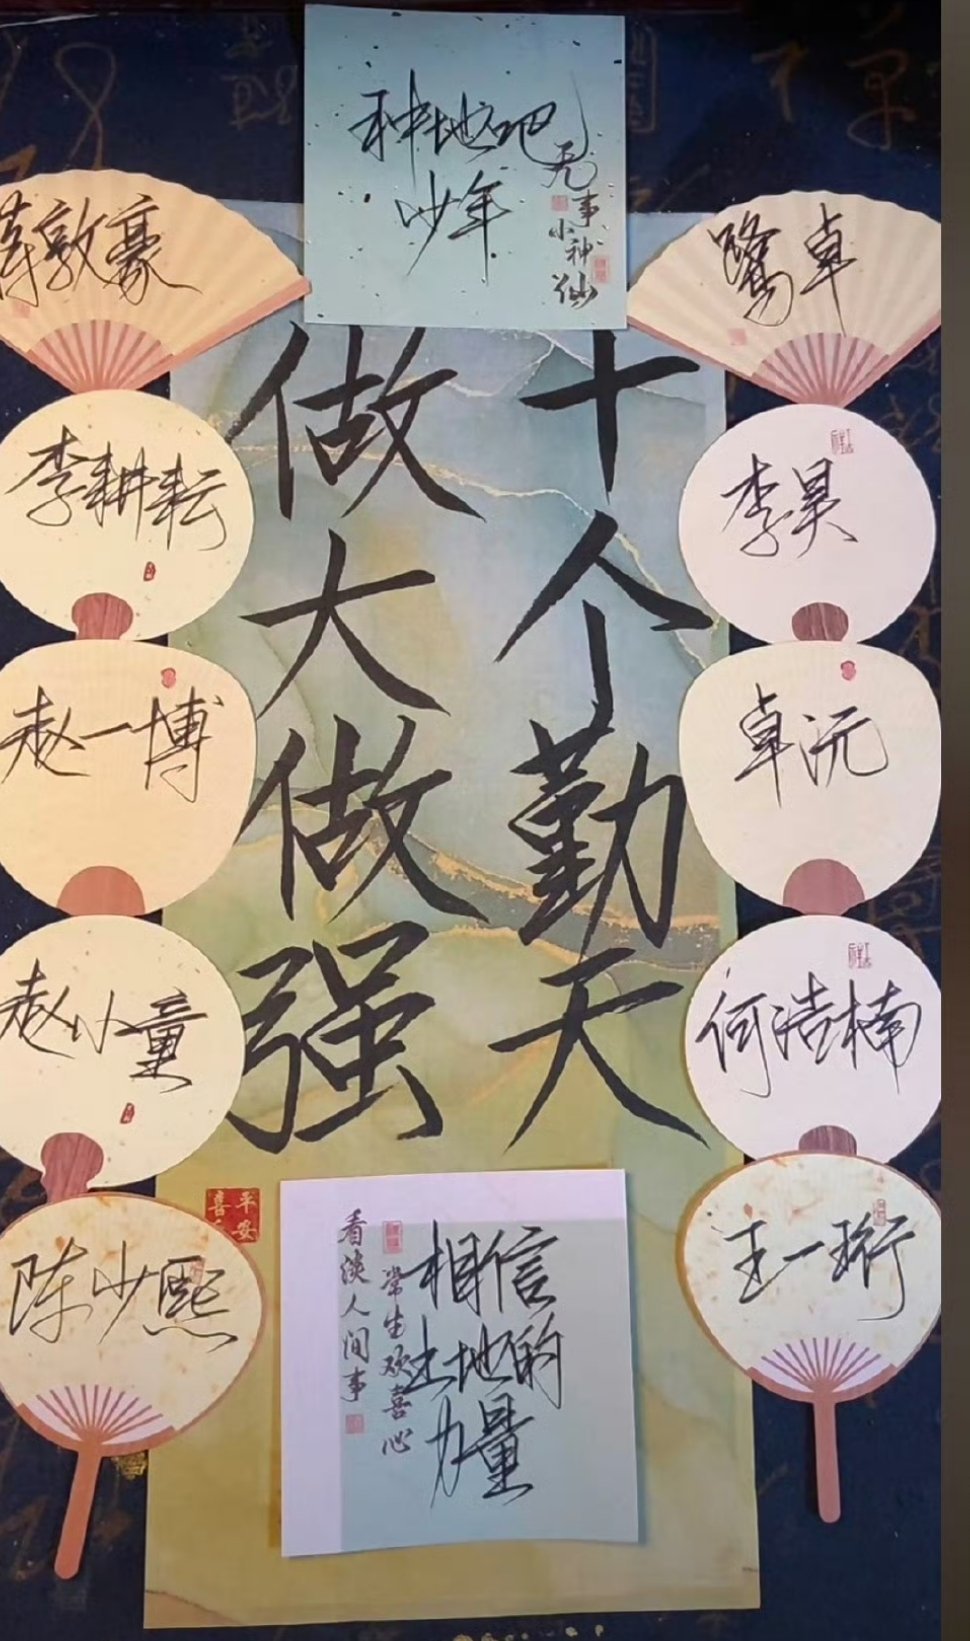 种地吧
少年
无事小神仙
蒋敦豪
鹭卓
十个勤天
做大做强
李耕耘
李昊
赵一博
卓沅
赵小童
何浩楠
陈少熙
王一珩
平安
喜
相信
土地的
力量
常生欢喜心
看淡人间事